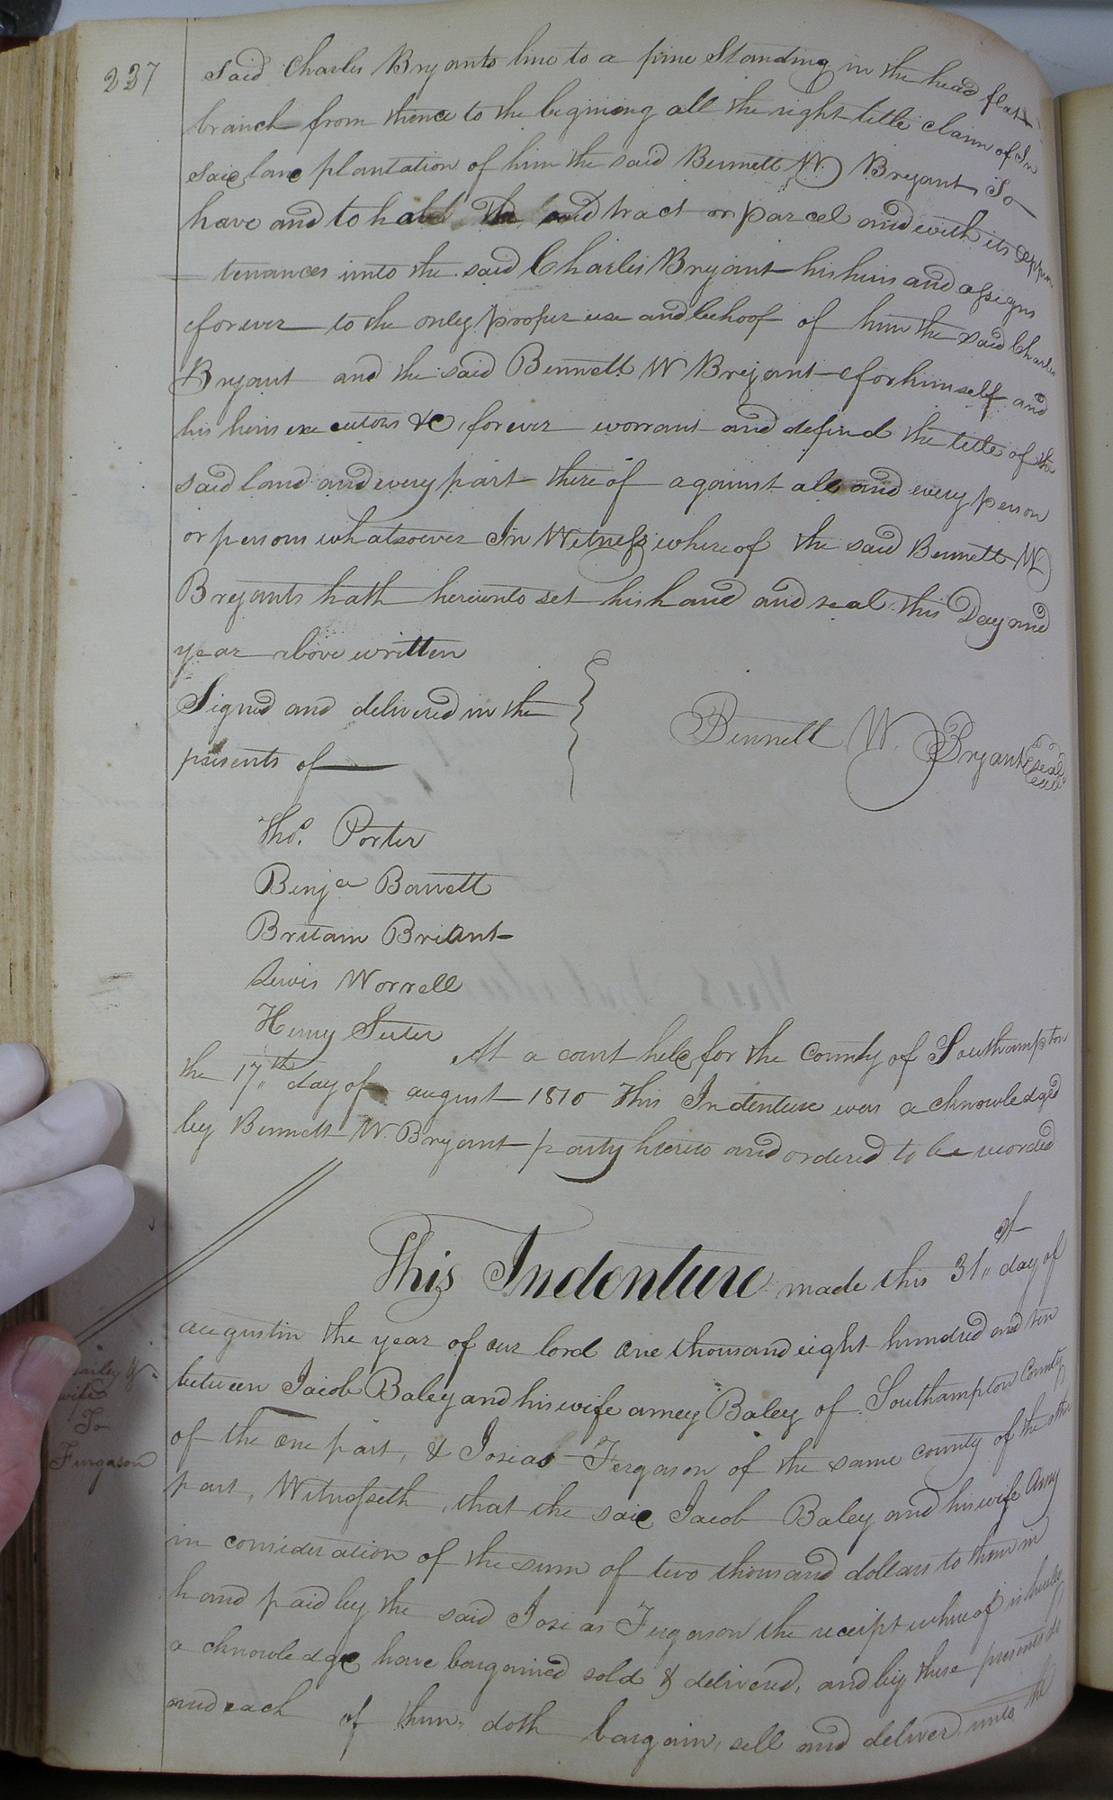 237
said Charles Bryants line to a pine Standing in the head flat
branch from thence to the begining all the right title claim of
said land plantation of him the said Bennett W Bryant To
have and to hold the said tract or parcel and with its appur
tenances unto the said Charles Bryant his heirs and assigns
forever to the only proper use and behoof of him the said Charles
Bryant and the said Bennett W Bryant for himself and
his heirs executors &c forever worrant and defend the title of the
said land and every part there of against all and every person
or persons whatsoever In Witness where of the said Bennett W
Bryants hath hereunto set his hand and seal this Day and
year above written
Signed and delivered in the
presents of
Bennett W. Bryant seal
Tho. Porter
Benja Barrett
Britain Briant
Lewis Worrell
Henry Seter
At a court held for the County of Southampton
the 17th day of august 1810 This Indenture was acknowledged
by Bennett W. Bryant party hereto and ordered to be recorded
This Indenture made this 31st day of
august in the year of our lord One thousand eight hundred and ten
between Jacob Baley and his wife amey Baley of Southampton County
of the one part, & Josias Fergason of the same county of the other
part, Witnesseth, that the said Jacob Baley and his wife Amy
in consideration of the sum of two thousand dollars to them in
hand paid by the said Josias Fergason the receipt whereof is hereby
acknowledge have bargained sold & delivered, and by these presents do
and each of them doth bargain, sell and deliver unto the
Bailey &
wife
To
Furgason